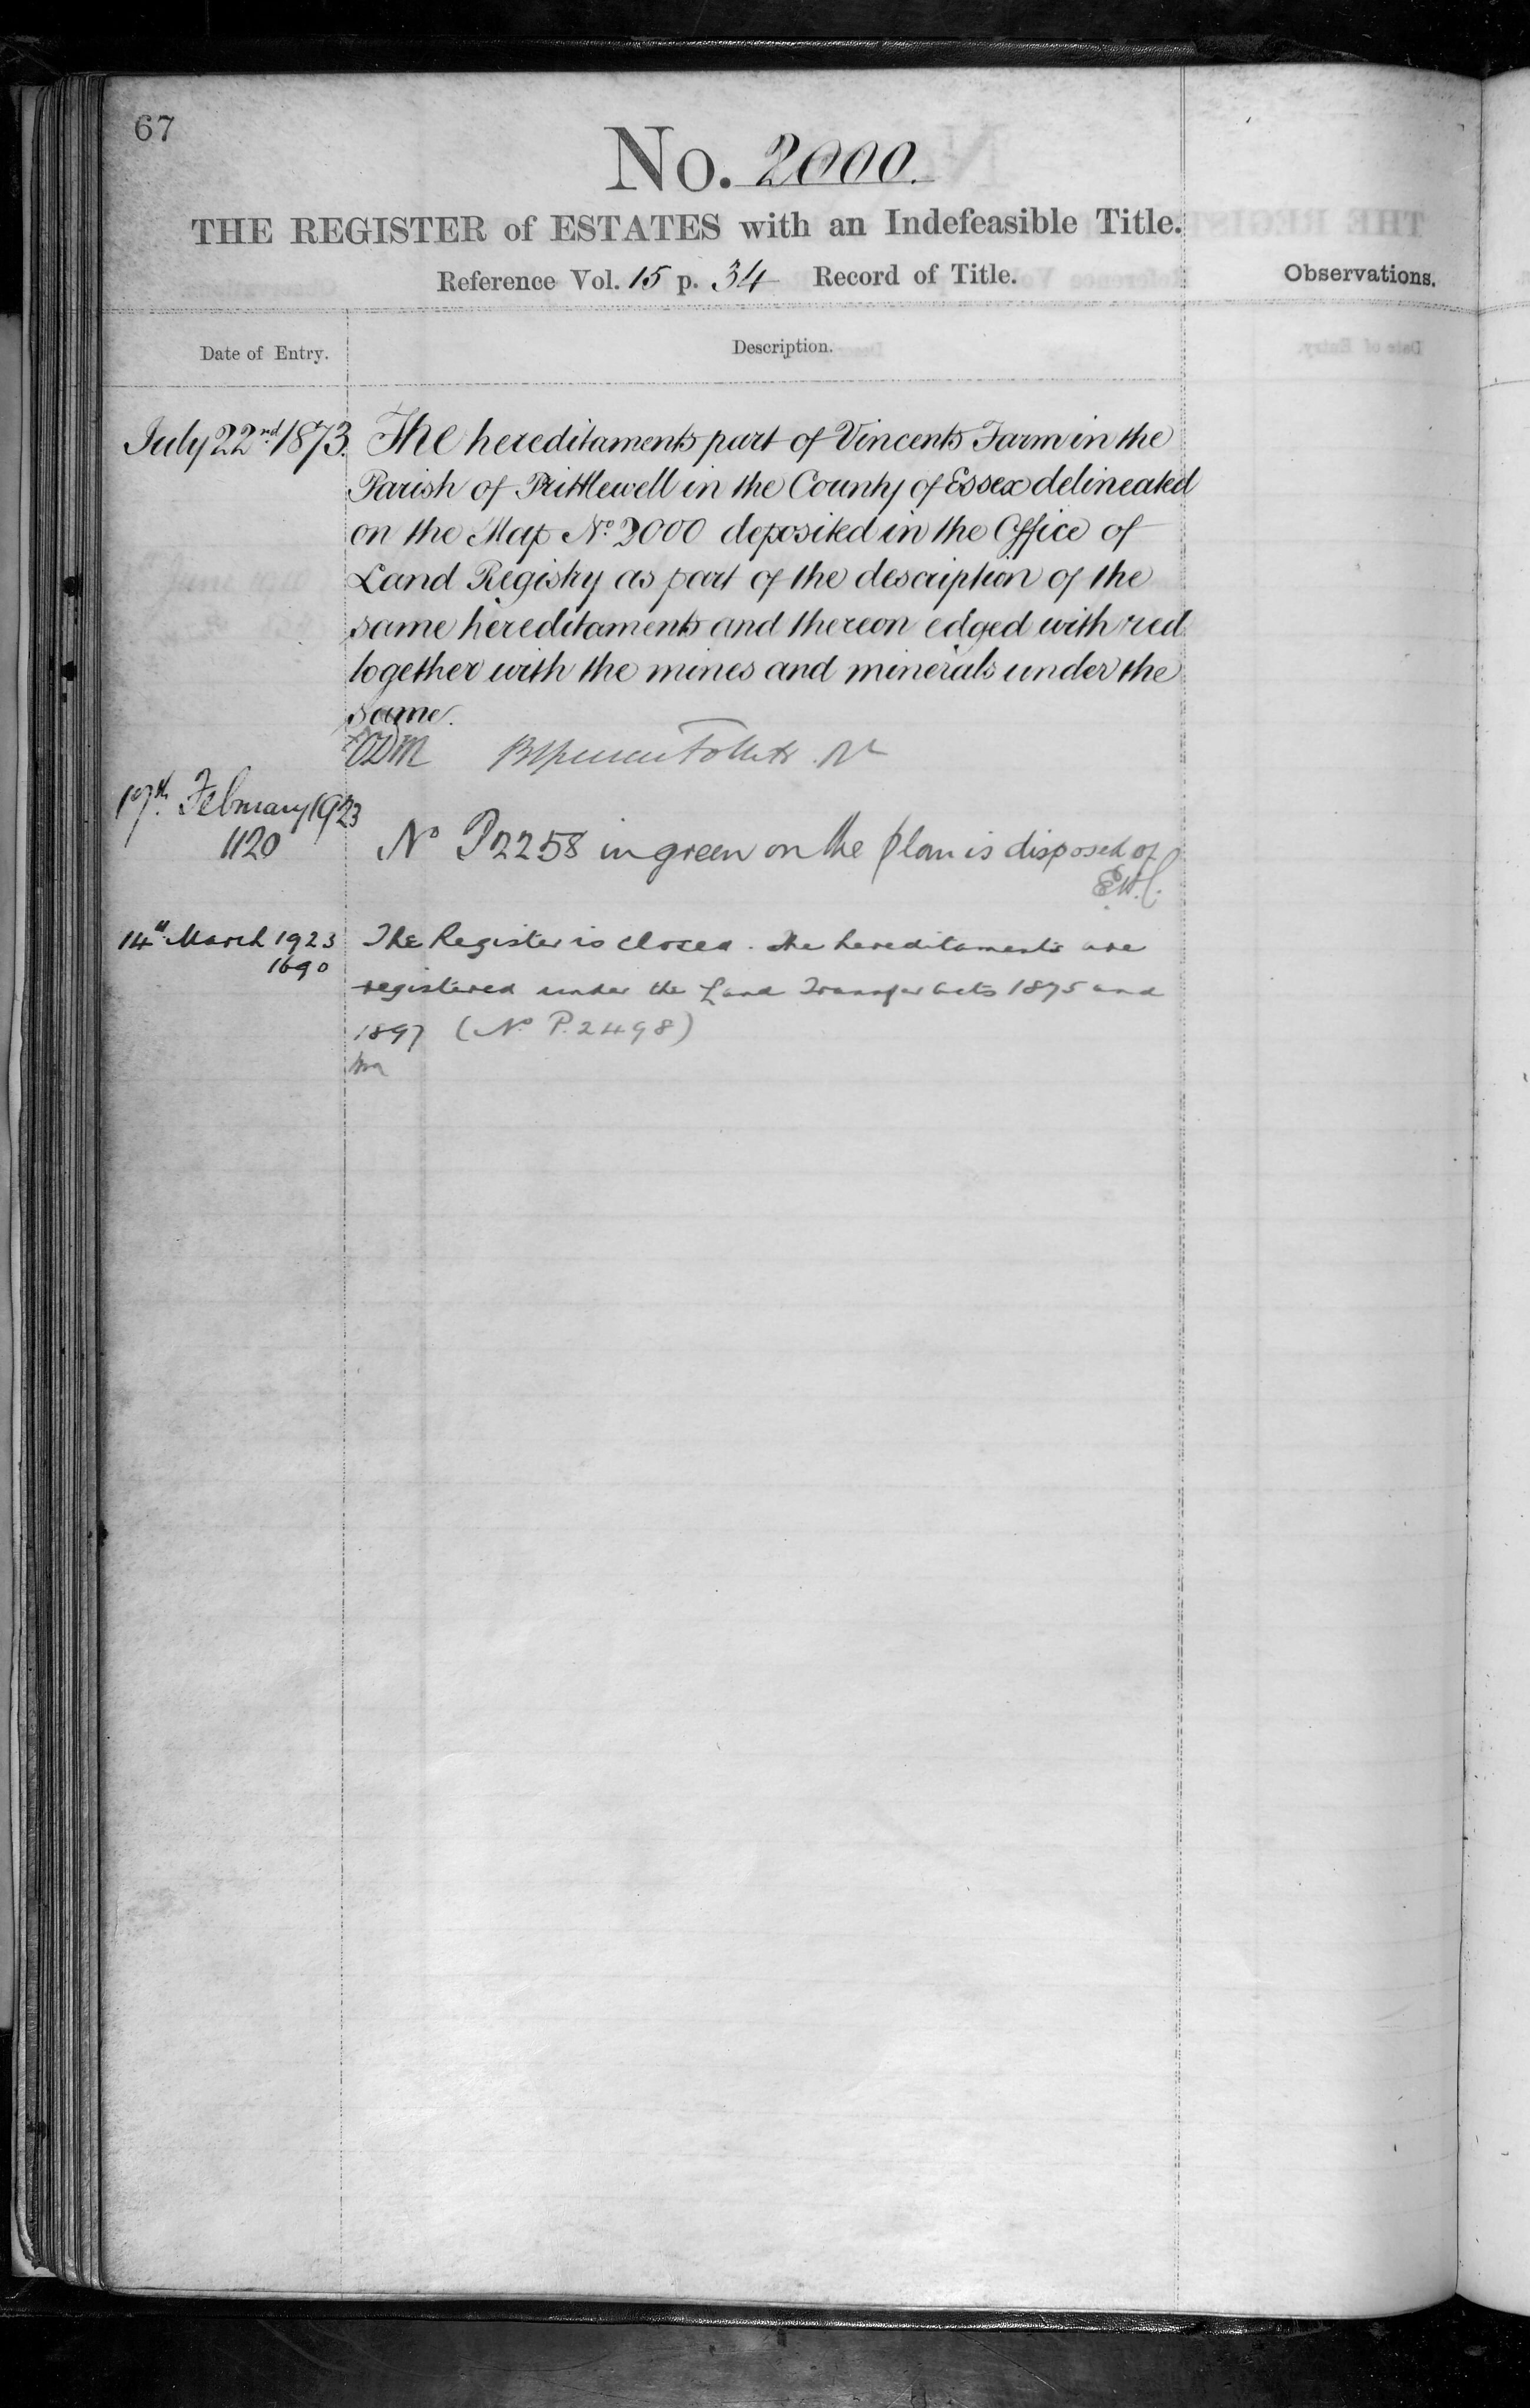 67
No. 2000.
THE REGISTER of ESTATES with an Indefeasible Title.
Reference Vol. 15 p. 34 Record of Title.
Observations.
Date of Entry.
Description.
July 22nd 1873. The hereditaments part of Vincents Farm in the
Parish of Prittlewell in the County of Essex delineated
on the Map No. 2000 deposited in the Office of
Land Registry as part of the description of the
same hereditaments and thereon edged with red
together with the mines and minerals under the
same.
17th February 1923
1120 No P2258 in green on the plan is disposed of
14th March 1923 The Register is closed. The hereditaments are
1690
registered under the Land Transfer Acts 1875 and
1897 (No P.2498)